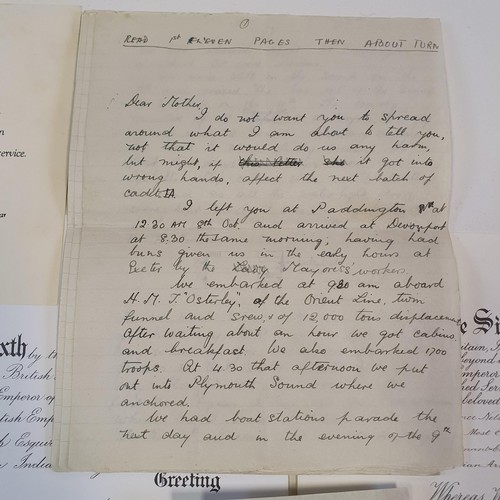 ①
READ 1st ELEVEN PAGES THEN ABOUT TURN
Dear Mother,
I do not want you to spread
around what I am about to tell you,
not that it would do us any harm,
but might, if it got into
wrong hands, affect the next batch of
cadets IA.
I left you at Paddington at
12.30 AM 8th Oct and arrived at Devonport
at 8.30 the same morning, having had
buns given us in the early hours at
Exeter by the Lady Mayoress' workers.
We embarked at 9 am aboard
H.M.T. "Osterley", of the Orient Line, twin
funnel and screw, & of 12,000 tons displacement
After waiting about an hour we got cabins
and breakfast. We also embarked 1700
troops. At 4.30 that afternoon we put
out into Plymouth Sound where we
anchored.
We had boat stations parade the
next day and in the evening of the 9th
service.
xth by th
British
Emperor o
tish Emp
h Esqui
India
Greeting
e Si
itain, I
beyond
Emperor
belove
Most E
Whereas W